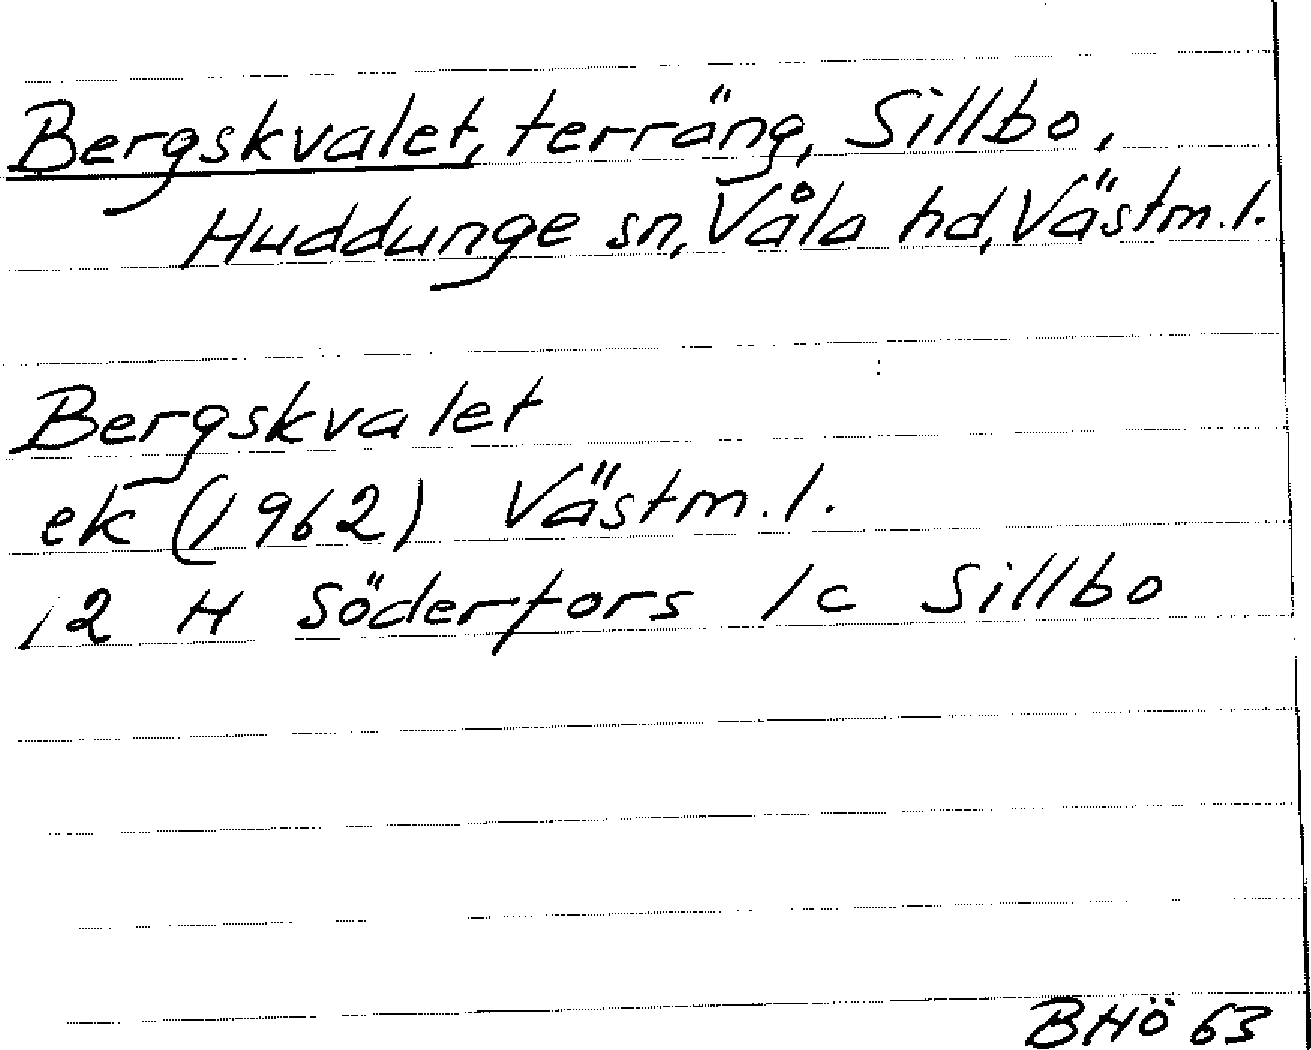 Bergskvalet, terräng, Sillbo,
Huddunge sn, Våla hd, Västm. l.
Bergskvalet
ek (1962) Västm. l.
12 H Söderfors 1c Sillbo
BHÖ 63